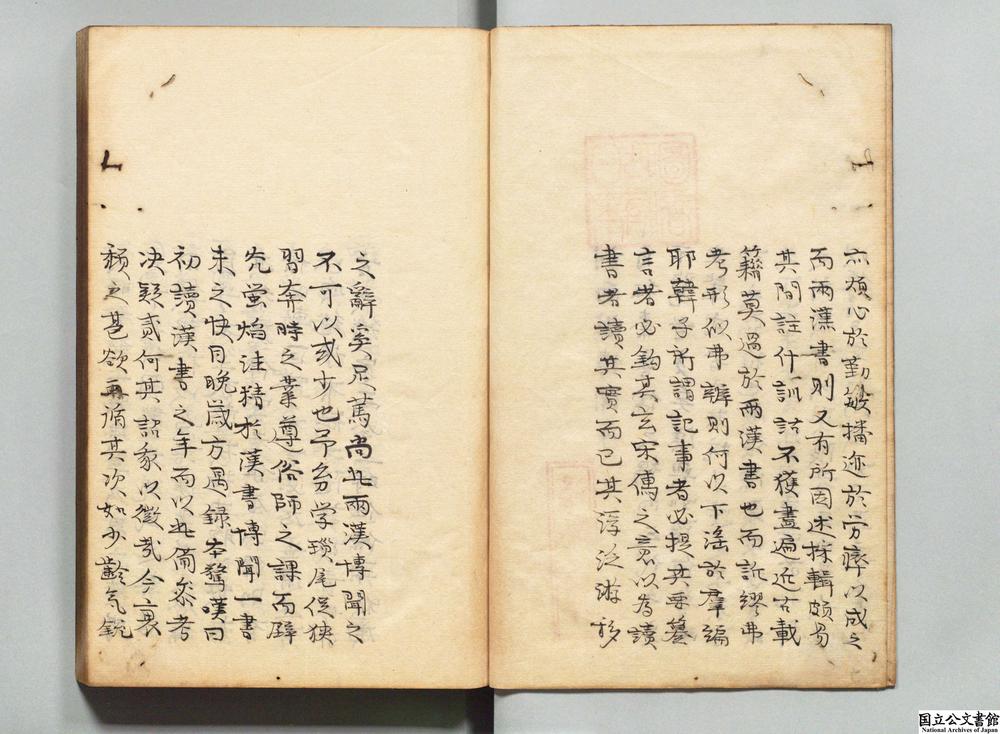 亦煩心於勤敏播迹於労瘁以成之
而兩漢書則又有所因述採輯頗易
其間註什訓詁不獲盡遍近古載
籍莫過於兩漢書也而訛繆弗
考形似弗辨則何以下滛於羣編
耶韓子所謂記事者必提其要纂
言者必鈎其玄宋傳之意以為讀
書者讀其實而已其浮泛游移
之辭奚足蔫尚此兩漢博聞之
不可以或少也予㓜学瑣尾促狹
習奔時之業遵俗師之課而肄
光蛍焰注精於漢書博聞一書
未之快目晩歳方遇録本驚嘆曰
初讀漢書之年而以此俻叅考
决疑貳何其詔象以徴哉今衰
頽之甚欲再循其次如少齡気鋭
国立公文書館
National Archives of Japan